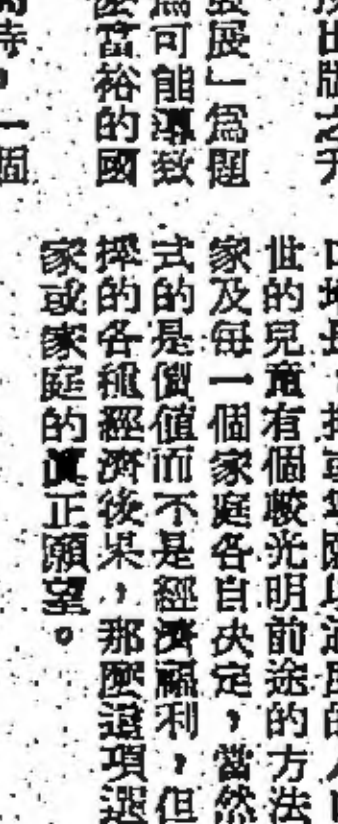 出版之
展」爲題
爲可能導致
麼富裕的國
時，一個
世的兒童有個較光明前途的方法
家及每一個家庭各自決定，當然
式的是價值而不是經濟福利，但
擇的各種經濟後果，那麼這項選
家或家庭的眞正願望。